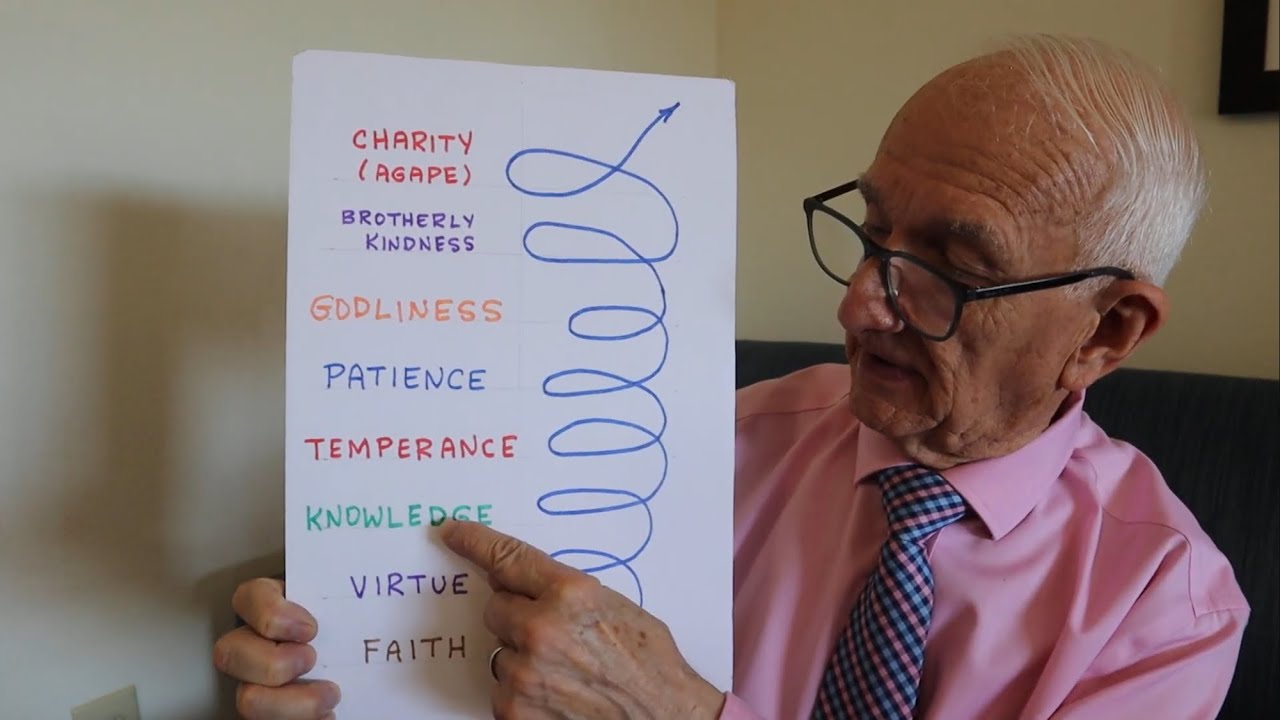 CHARITY
(AGAPE)
BROTHERLY
KINDNESS
GODLINESS
PATIENCE
TEMPERANCE
KNOWLEDGE
VIRTUE
FAITH